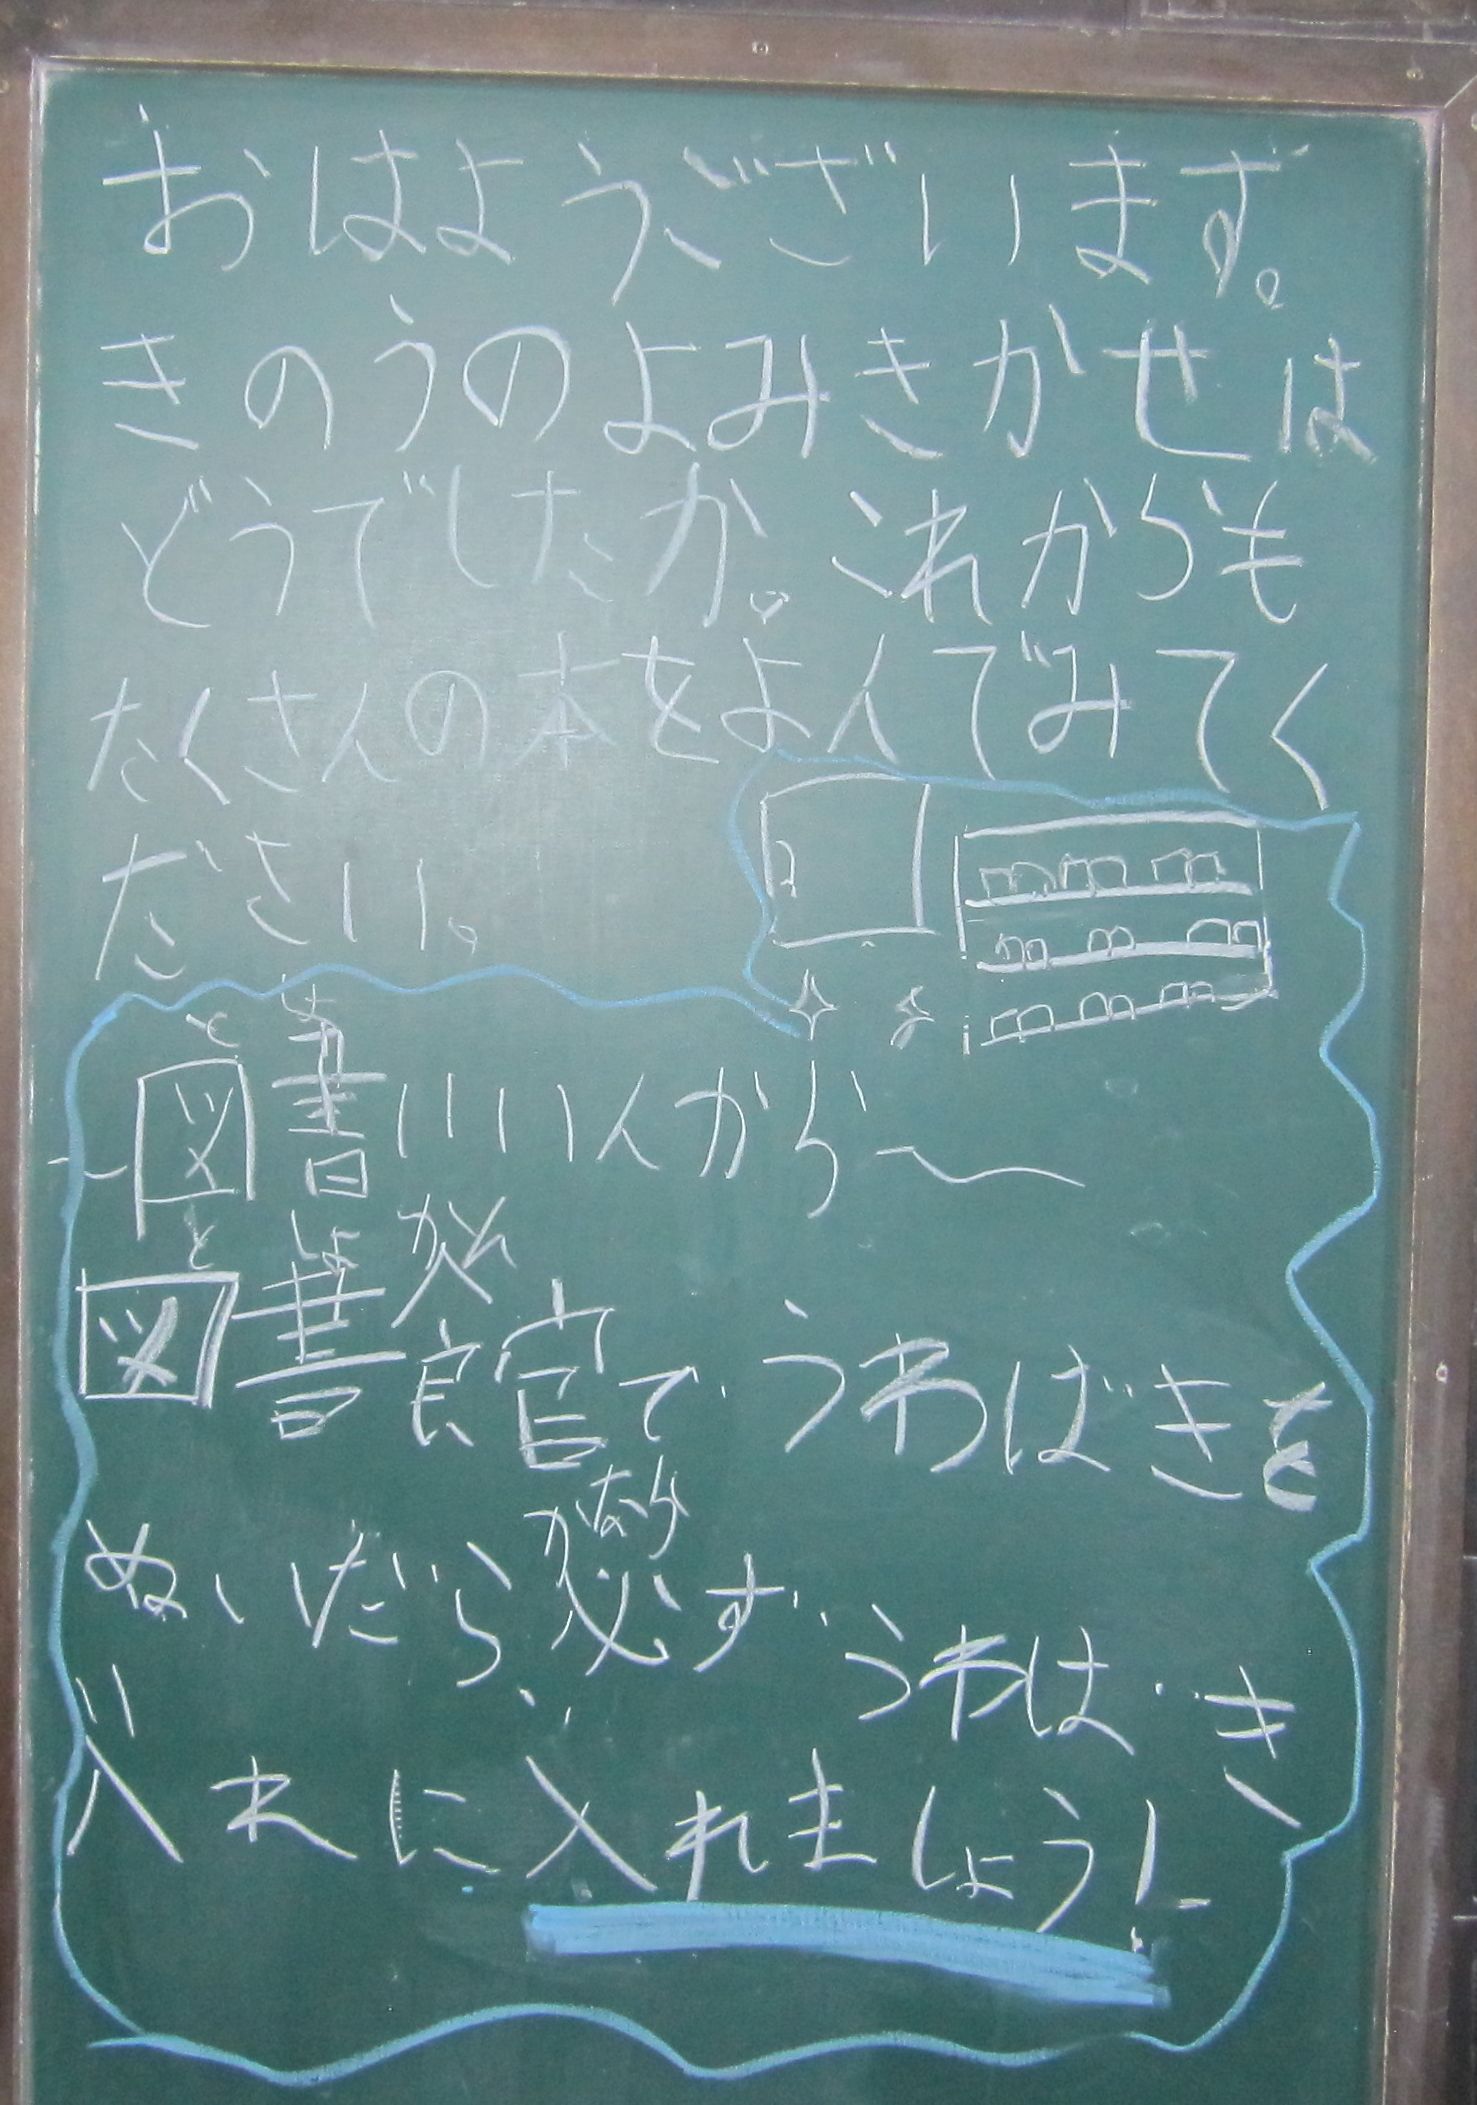 おはようございます。
きのうのよみきかせは
どうでしたか。これからも
たくさんの本をよんでみてく
ださい。
としょ
~図書いいんから~
としょかん
図書館でうわばきを
かなら
ぬいだら、必ずうわばき
い
入れに入れましょう!